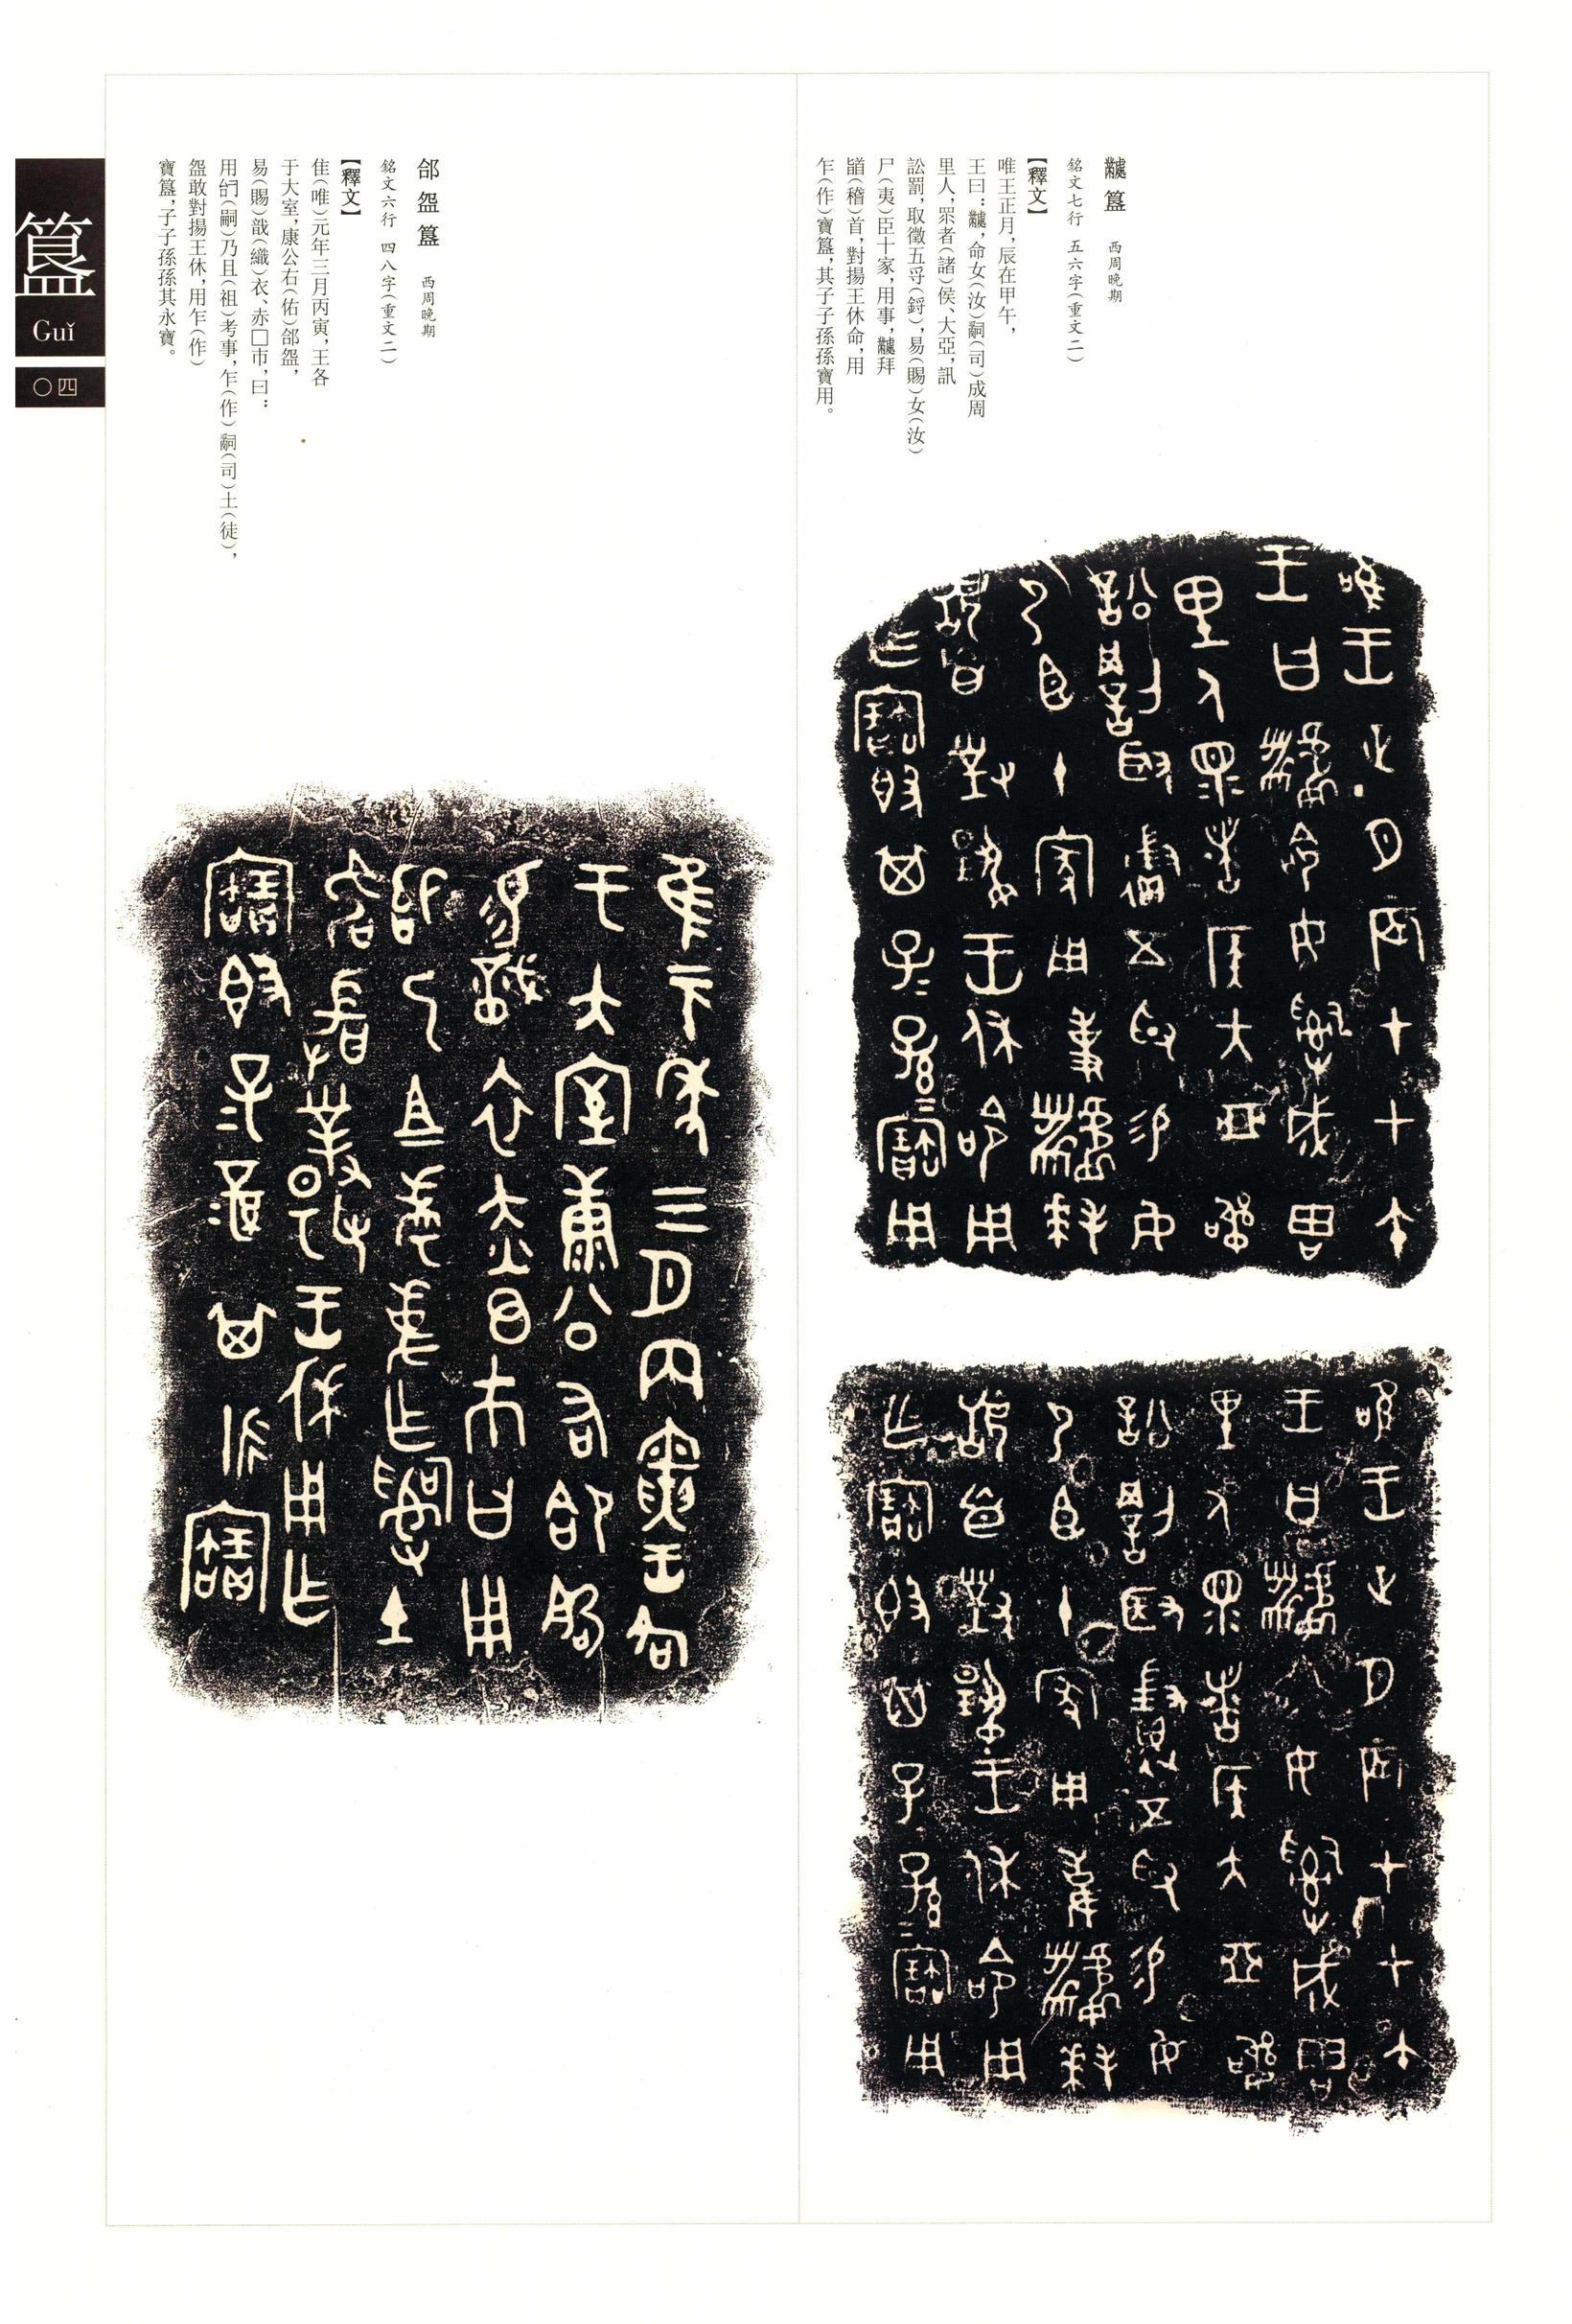 䵼簋 西周晚期
銘文七行 五六字(重文二)
【釋文】
唯王正月,辰在甲午,
王曰:,命女(汝)𤔲(司)成周
里人,眔者(諸)侯、大亞,訊
訟罰,取徵五寽(鋝),易(賜)女(汝)
尸(夷)臣十家,用事,拜
(稽)首,對揚王休命,用
乍(作)寶簋,其子子孫孫寶用。
郃䀇簋 西周晚期
銘文六行 四八字(重文二)
【釋文】
隹(唯)元年三月丙寅,王各
于大室,康公右(佑)郃䀇,
易(賜)戠(織)衣、赤□巿,曰:
用(嗣)乃且(祖)考事,乍(作)𤔲(司)土(徒),
䀇敢對揚王休,用乍(作)
寶簋,子子孫孫其永寶。
簋
Guǐ
〇四